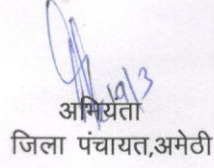 19/3
अभियंता
जिला पंचायत,अमेठी